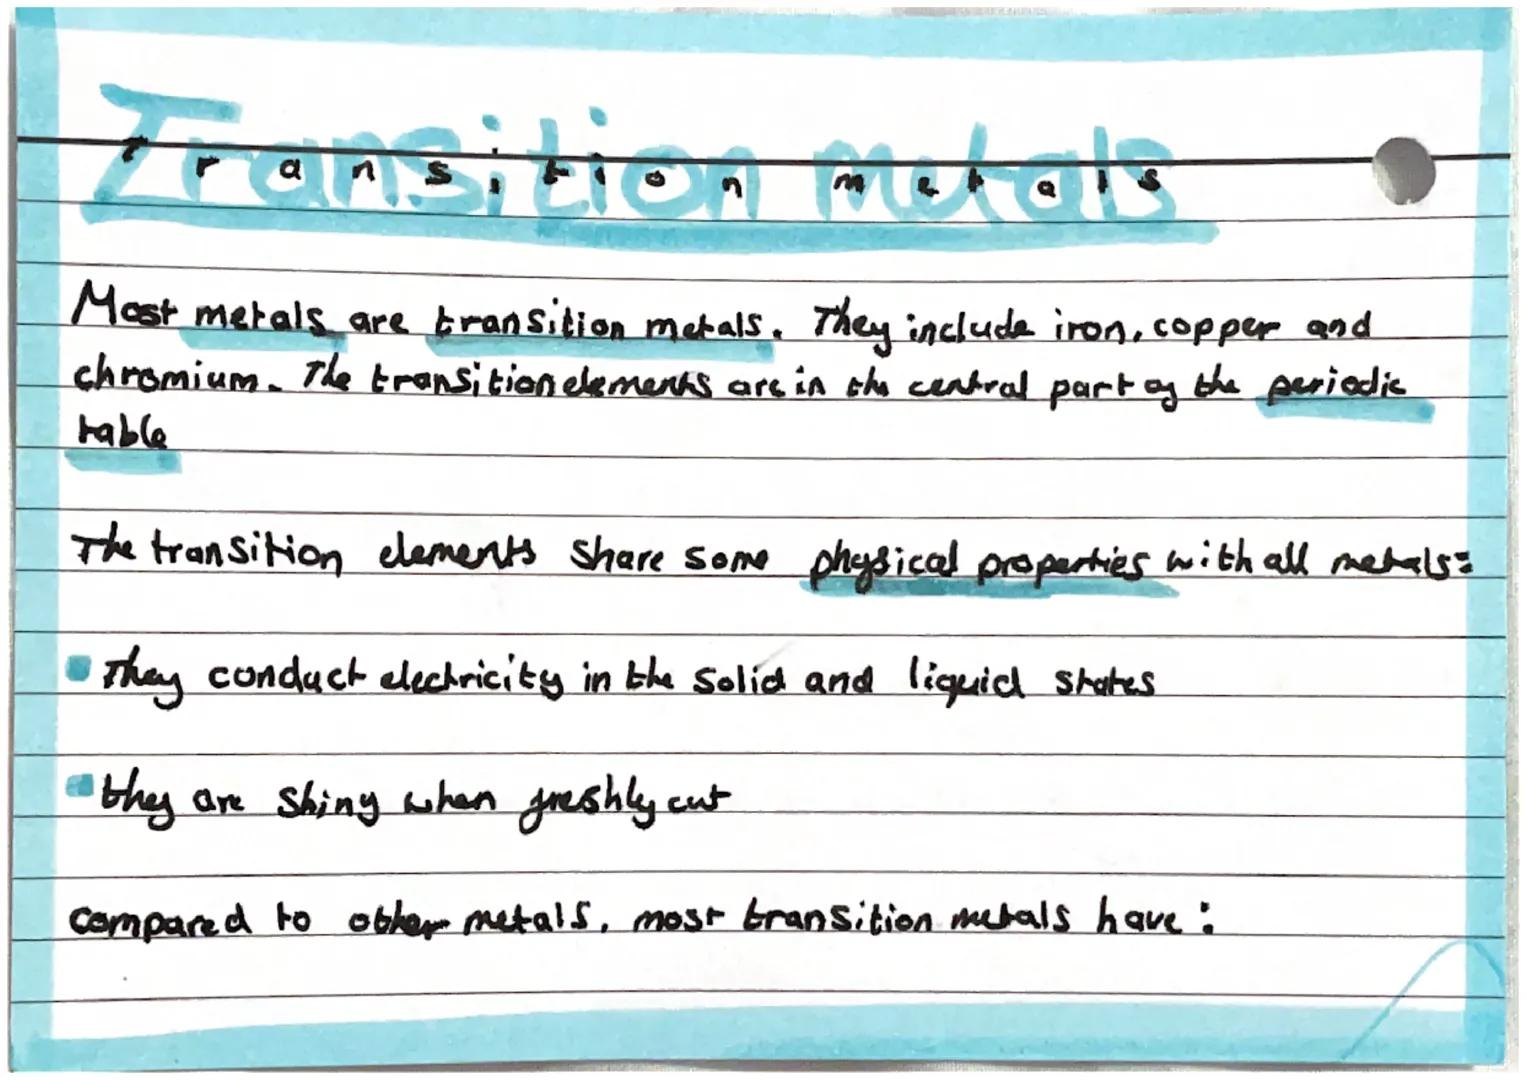 Transition metals
transition metals
Most metals are transition metals. They include iron, copper and
chromium. The transition elements are in the central part of the periodic
table
The transition elements share some physical properties with all metals:
They conduct electricity in the solid and liquid states
they are shiny when freshly cut
compared to other metals, most transition metals have: